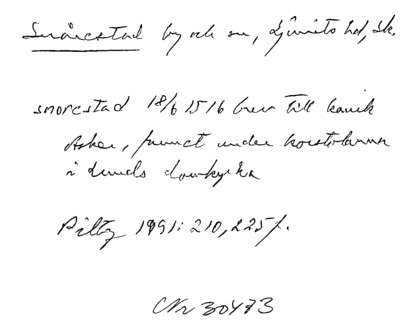 Snårestad by och sn, Ljunits hd, Sk.
snorestad 18/6 1516 brev till kanik
Asker, funnet under korstolarna
i Lunds domkyrka
Piltz 1991: 210, 225f.
CNr 30473